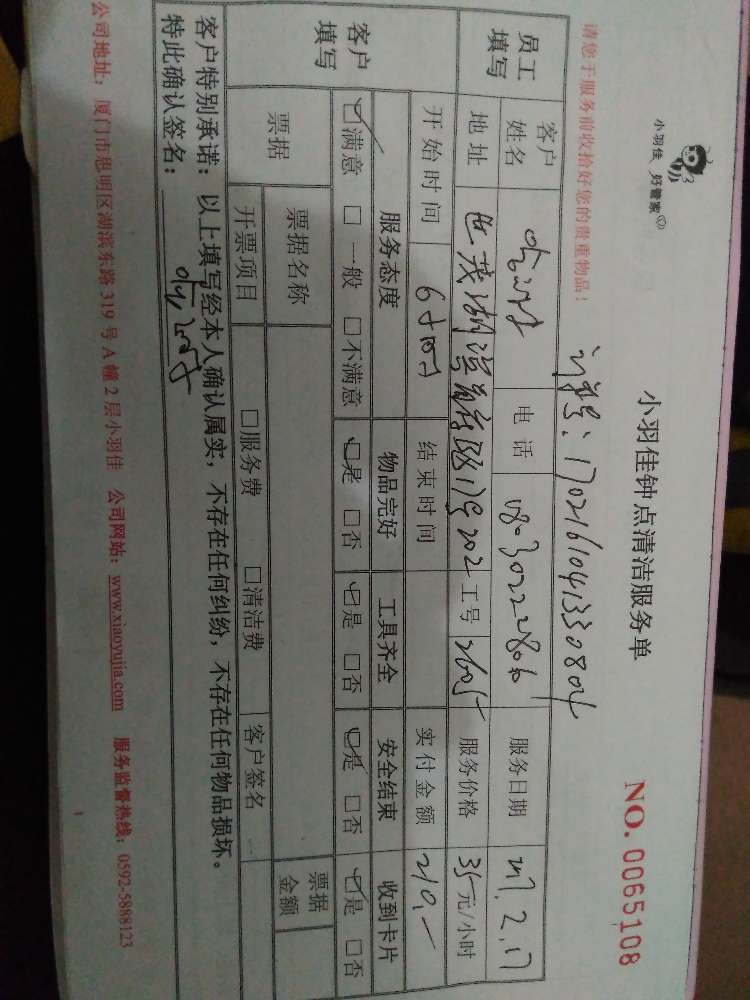 小羽佳 好管家
小羽佳钟点清洁服务单
NO. 0065108
请您于服务前收拾好您的贵重物品！
订单号：1702161041330804
员工填写
客户姓名
电话 18030222806
服务日期 2017.2.17
地址 世茂湖滨首府 202
工号 26051
服务价格 35元/小时
开始时间 6小时
结束时间
实付金额 210.-
客户填写
服务态度 物品完好 工具齐全 安全结束 收到卡片
☑满意 □一般 □不满意 ☑是 □否 ☑是 □否 ☑是 □否 ☑是 □否
票据
票据名称
票据金额
开票项目 □服务费 □清洁费 客户签名
客户特别承诺：以上填写经本人确认属实，不存在任何纠纷，不存在任何物品损坏。
特此确认签名：
公司地址：厦门市思明区湖滨东路 319 号 A 幢 2 层小羽佳 公司网站：www.xiaoyujia.com 服务监督热线：0592-5888123